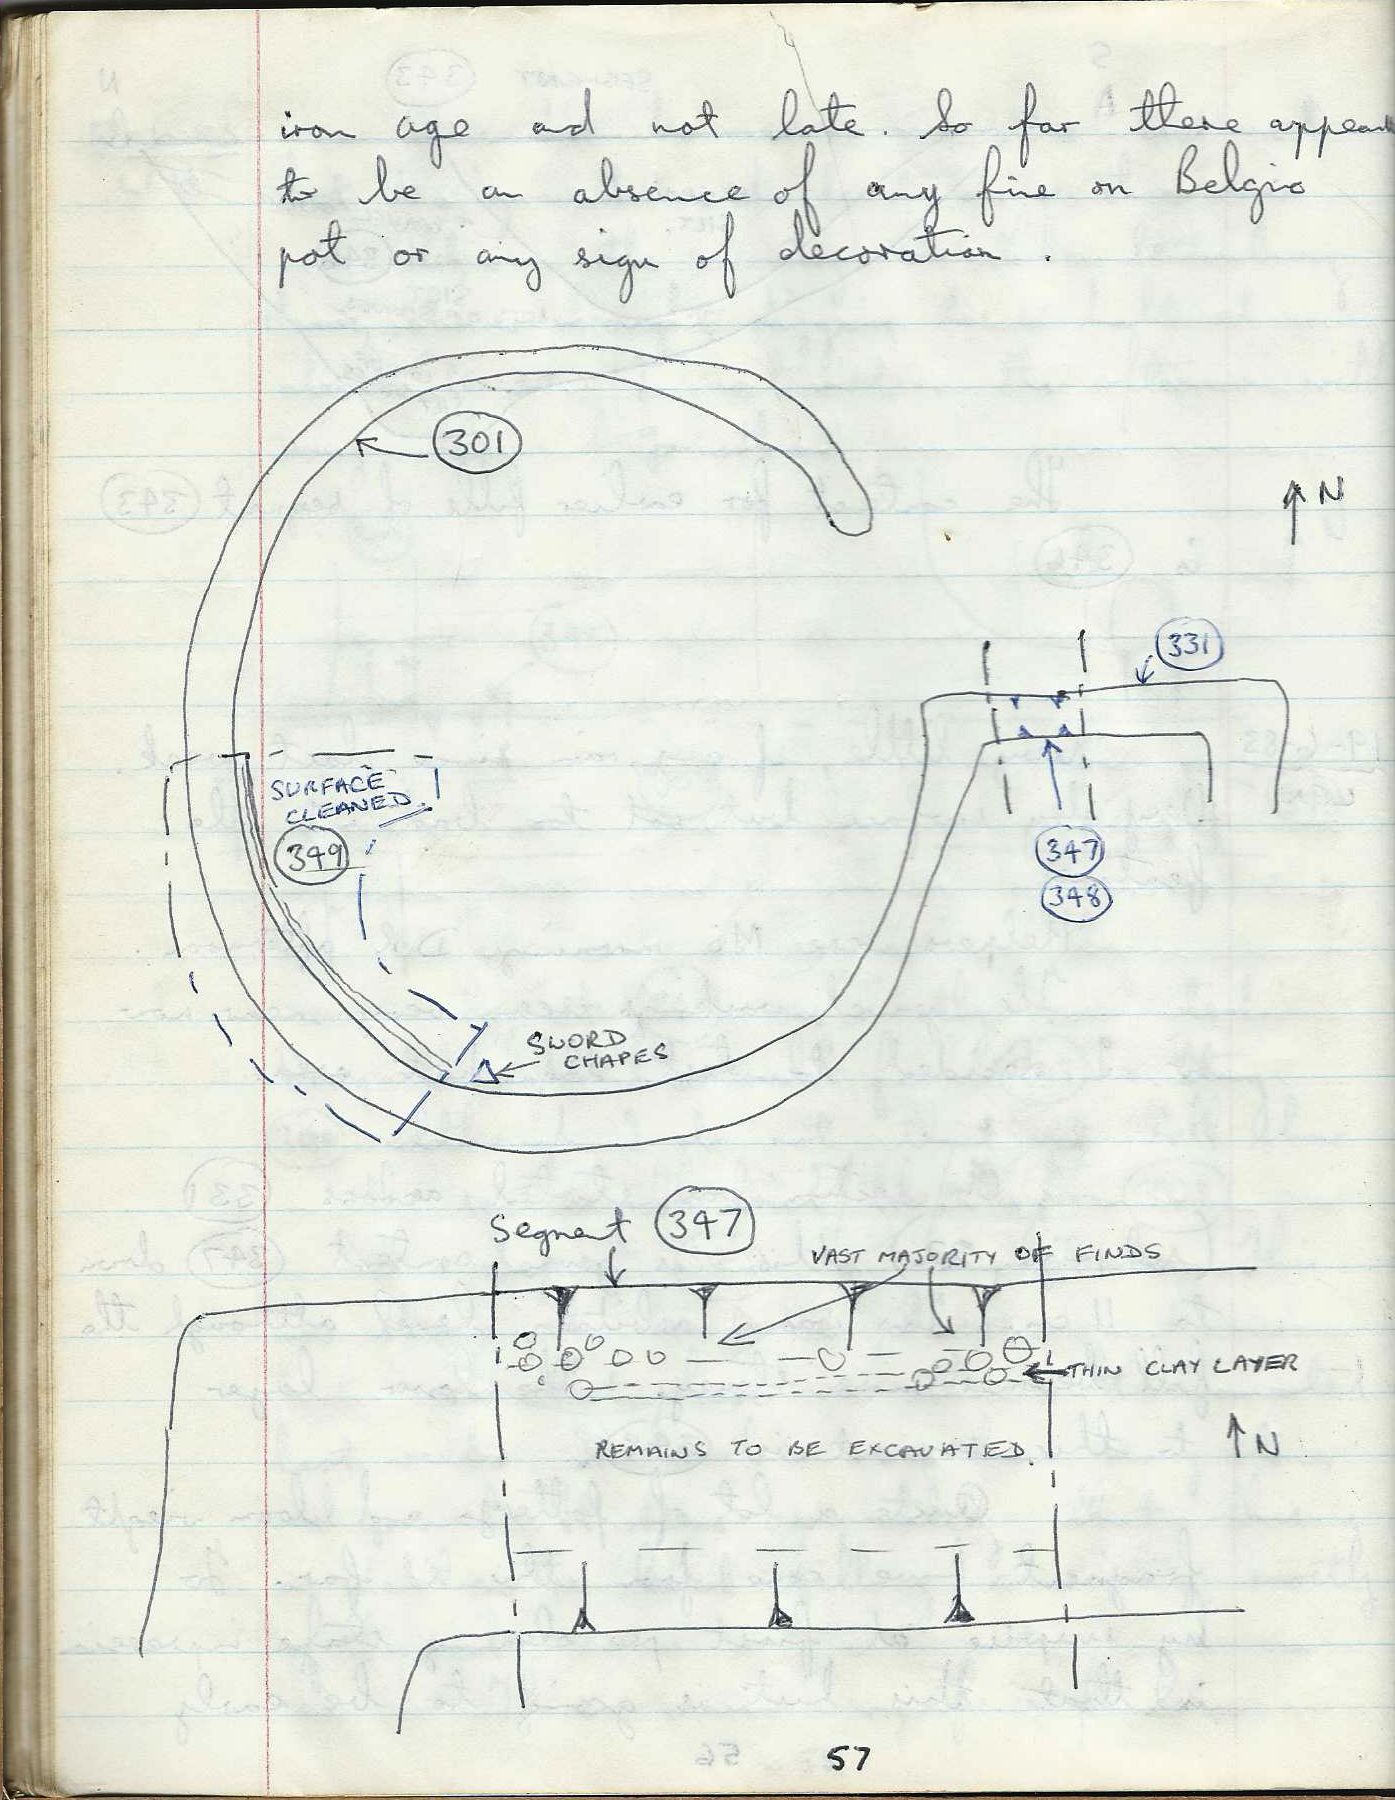 iron age and not late. So far there appears
to be an absence of any fine or Belgic
pot or any sign of decoration.
301
N
331
SURFACE
CLEANED.
349
347
348
SWORD
CHAPES
Segment 347
VAST MAJORITY OF FINDS
THIN CLAY LAYER
REMAINS TO BE EXCAVATED.
N
57